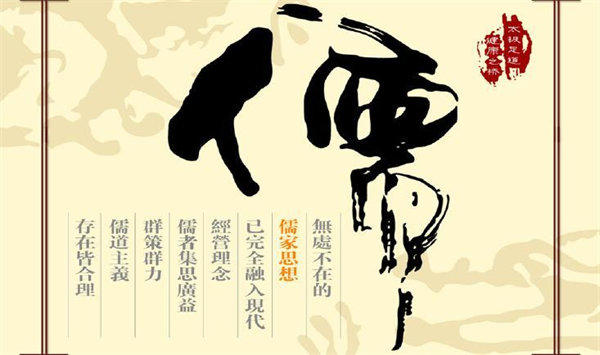 儒
太极足道
健康之桥
無處不在的
儒家思想
已完全融入現代
經營理念
儒者集思廣益
群策群力
儒道主義
存在皆合理